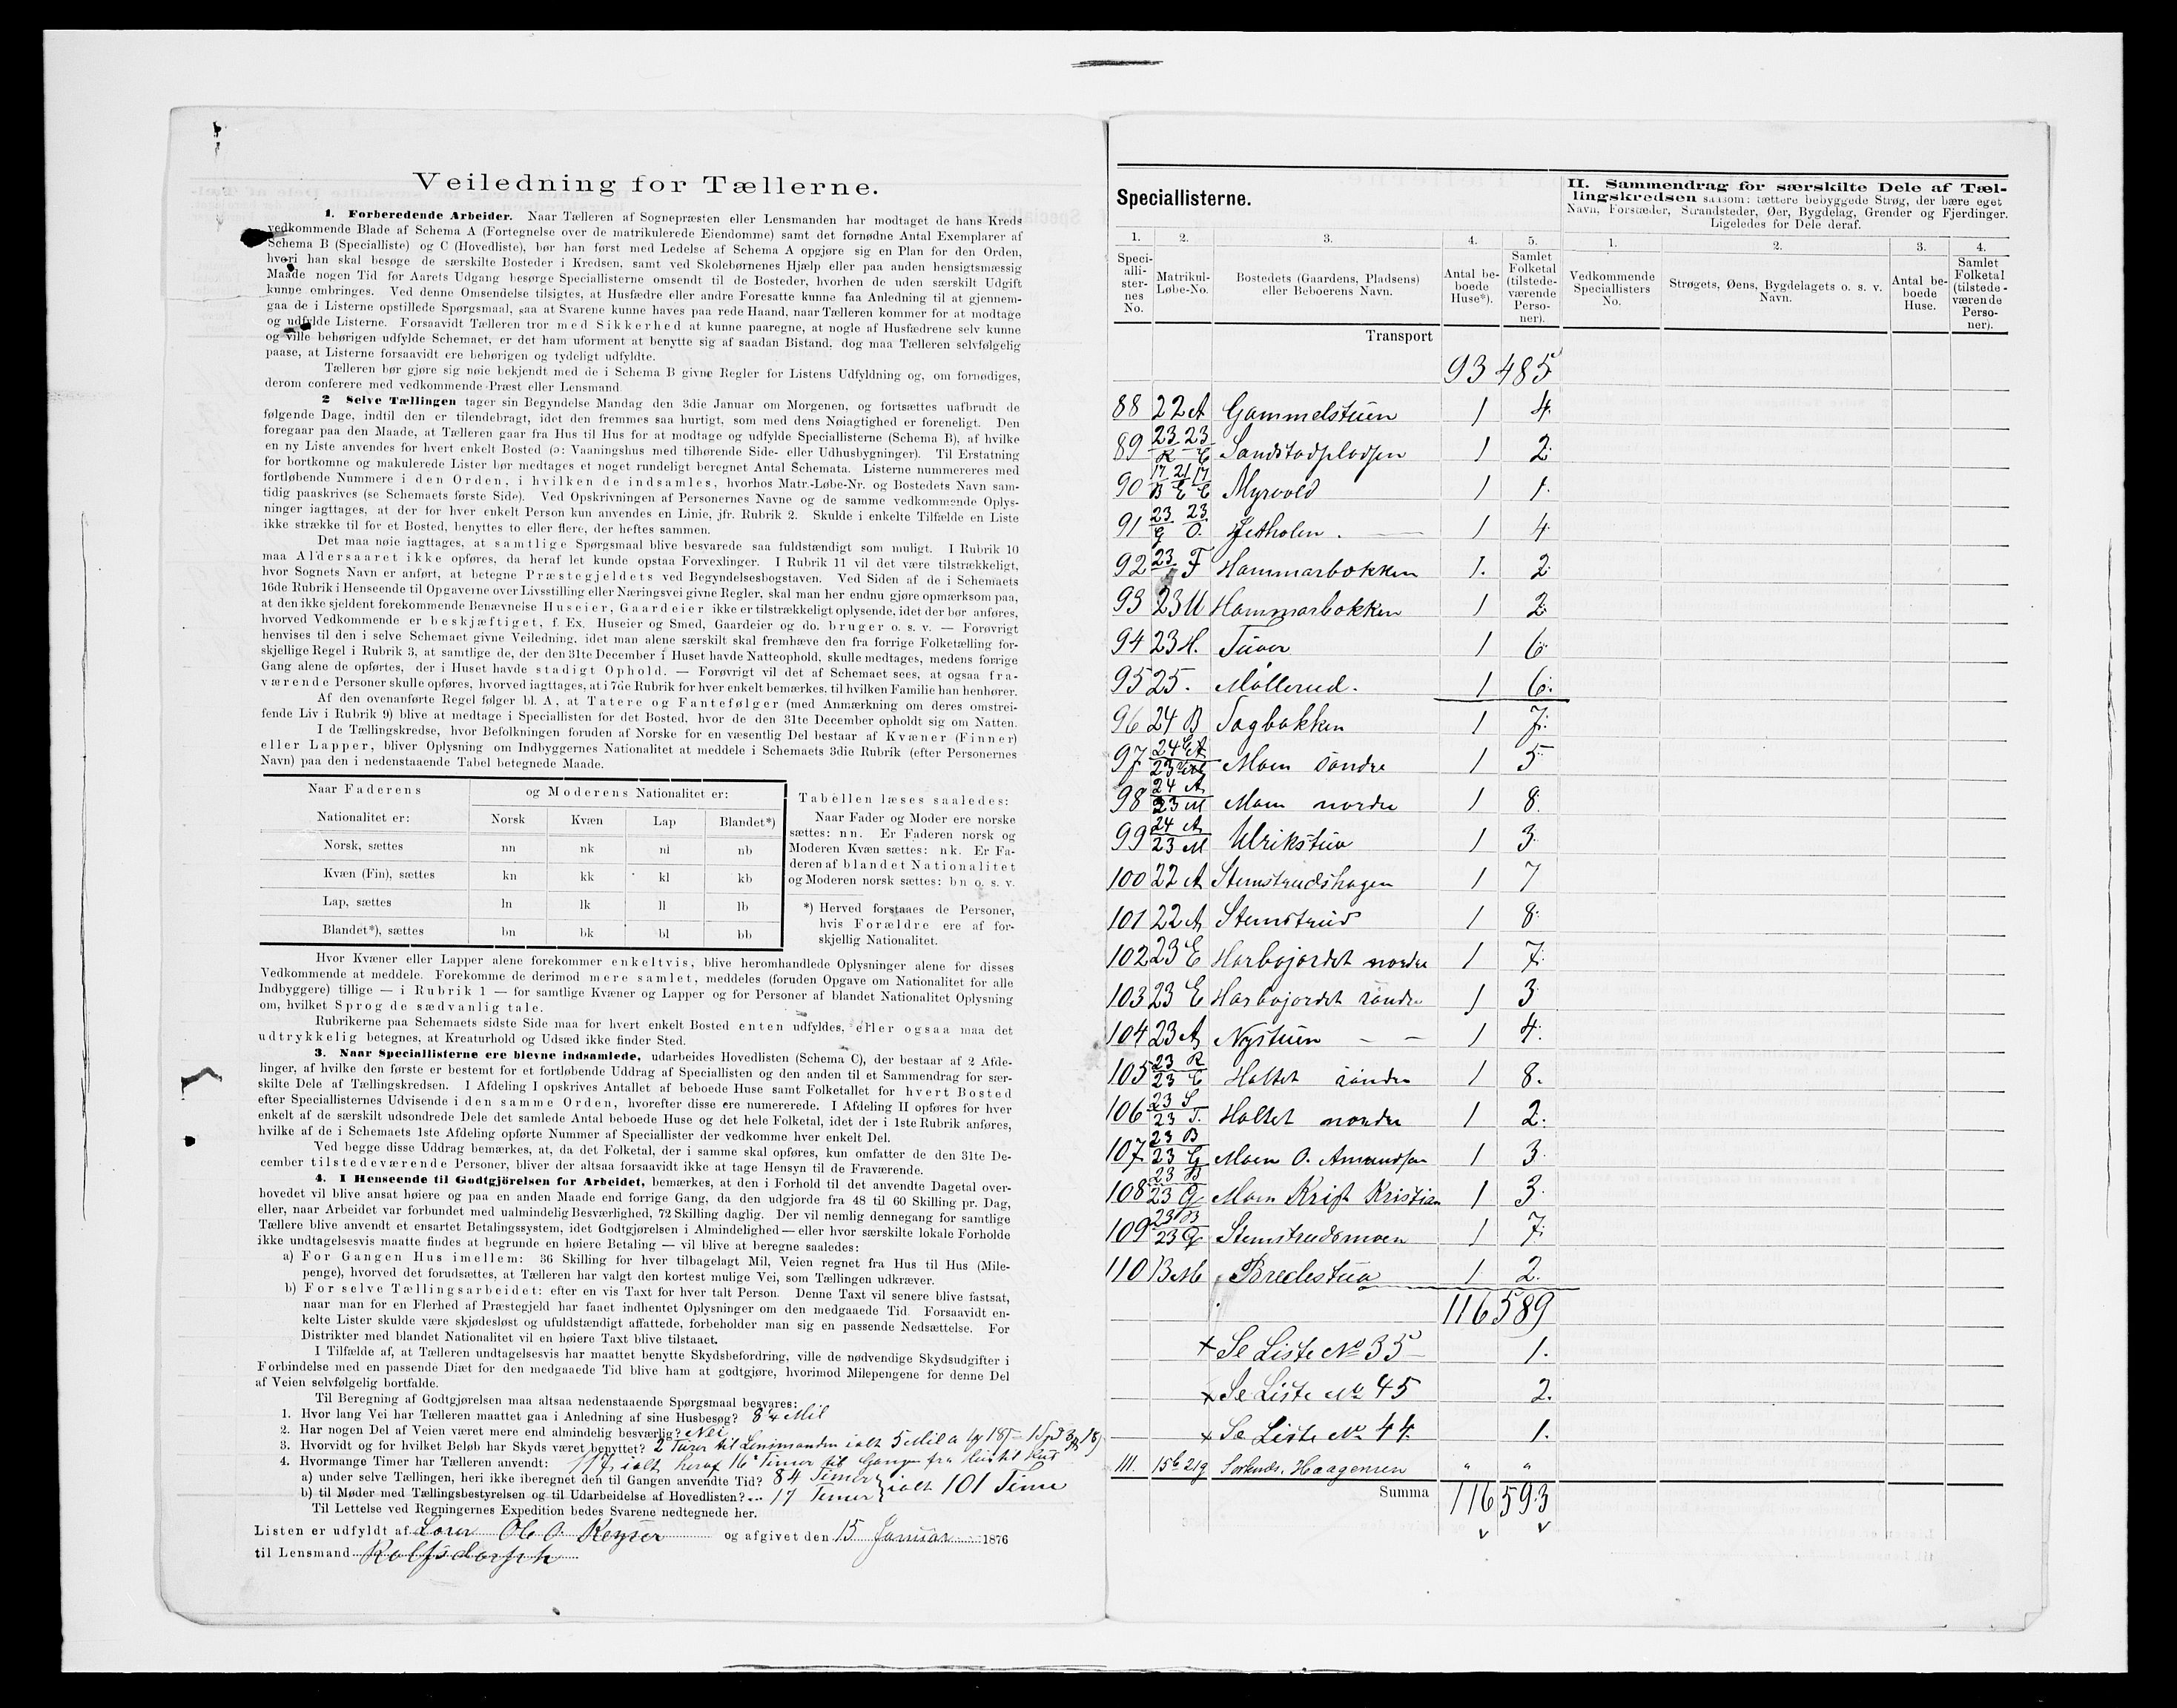 Veiledning for Tællerne.
1. Forberedende Arbeider. Naar Tælleren af Sognepræsten eller Lensmanden har modtaget de hans Kreds
vedkommende Blade af Schema A (Fortegnelse over de matrikulerede Eiendomme) samt det fornødne Antal Exemplarer af
Schema B (Specialliste) og C (Hovedliste), bør han først med Ledelse af Schema A opgjøre sig en Plan for den Orden,
hvori han skal besøge de særskilte Bosteder i Kredsen, samt ved Skolebørnenes Hjælp eller paa anden hensigtsmæssig
Maade nogen Tid før Aarets Udgang besørge Speciallisterne omsendt til de Bosteder, hvorhen de uden særskilt Udgift
kunne ombringes. Ved denne Omsendelse tilsigtes, at Husfædre eller andre Foresatte kunne faa Anledning til at gjennem-
gaa de i Listerne opstillede Spørgsmaal, saa at Svarene kunne haves paa rede Haand, naar Tælleren kommer for at modtage
og udfylde Listerne. Forsaavidt Tælleren tror med Sikkerhed at kunne paaregne, at nogle af Husfædrene selv kunne
og ville behørigen udfylde Schemaet, er det ham uforment at benytte sig af saadan Bistand, dog maa Tælleren selvfølgelig
paase, at Listerne forsaavidt ere behørigen og tydeligt udfyldte.
Tælleren bør gjøre sig nøie bekjendt med de i Schema B givne Regler for Listens Udfyldning og, om fornødiges,
derom conferere med vedkommende Præst eller Lensmand
2 Selve Tællingen tager sin Begyndelse Mandag den 3die Januar om Morgenen, og fortsættes uafbrudt de
følgende Dage, indtil den er tilendebragt, idet den fremmes saa hurtigt, som med dens Nøiagtighed er foreneligt. Den
foregaar paa den Maade, at Tælleren gaar fra Hus til Hus for at modtage og udfylde Speciallisterne (Schema B), af hvilke
en ny Liste anvendes for hvert enkelt Bosted (ɔ: Vaaningshus med tilhørende Side- eller Udhusbygninger). Til Erstatning
for bortkomne og makulerede Lister bør medtages et noget rundeligt beregnet Antal Schemata. Listerne nummereres med
fortløbende Nummere i den Orden, i hvilken de indsamles, hvorhos Matr.-Løbe-Nr. og Bostedets Navn sam-
tidig paaskrives (se Schemaets første Side). Ved Opskrivningen af Personernes Navne og de samme vedkommende Oplys-
ninger iagttages, at der for hver enkelt Person kun anvendes en Linie, jfr. Rubrik 2. Skulde i enkelte Tilfælde en Liste
ikke strække til for et Bosted, benyttes to eller flere, der heftes sammen.
Det maa nøie iagttages, at samtlige Spørgsmaal blive besvarede saa fuldstændigt som muligt. I Rubrik 10
maa Aldersaaret ikke opføres, da heraf let kunde opstaa Forvexlinger. I Rubrik 11 vil det være tilstrækkeligt,
hvor Sognets Navn er anført, at betegne Præstegjeldets ved Begyndelsesbogstaven. Ved Siden af de i Schemaets
16de Rubrik i Henseende til Opgaverne over Livsstilling eller Næringsvei givne Regler, skal man her endnu gjøre opmærksom paa,
at den ikke sjeldent forekommende Benævnelse Huseier, Gaardeier ikke er tilstrækkeligt oplysende, idet der bør anføres,
hvorved Vedkommende er beskjæftiget, f. Ex. Huseier og Smed, Gaardeier og do. bruger o. s. v. — Forøvrigt
henvises til den i selve Schemaet givne Veiledning, idet man alene særskilt skal fremhæve den fra forrige Folketælling for-
skjellige Regel i Rubrik 3, at samtlige de, der den 31te December i Huset havde Natteophold, skulle medtages, medens forrige
Gang alene de opførtes, der i Huset havde stadigt Ophold. — Forøvrigt vil det af Schemaet sees, at ogsaa fra-
værende Personer skulle opføres, hvorved iagttages, at i 7de Rubrik for hver enkelt bemærkes, til hvilken Familie han henhører.
Af den ovenanførte Regel følger bl. A, at Tatere og Fantefølger (med Anmærkning om deres omstrei-
fende Liv i Rubrik 9) blive at medtage i Speciallisten for det Bosted, hvor de den 31te December opholdt sig om Natten.
I de Tællingskredse, hvor Befolkningen foruden af Norske for en væsentlig Del bestaar af Kvæner (Finner)
eller Lapper, bliver Oplysning om Indbyggernes Nationalitet at meddele i Schemaets 3die Rubrik (efter Personernes
Navn) paa den i nedenstaaende Tabel betegnede Maade.
Naar Faderens Nationalitet er: og Moderens Nationalitet er:
Norsk Kvæn Lap Blandet*)
Norsk, sættes nn nk nl nb
Kvæn (Fin), sættes kn kk kl kb
Lap, sættes ln lk ll lb
Blandet*), sættes bn bk bl bb
Tabellen læses saaledes:
Naar Fader og Moder ere norske
sættes: nn. Er Faderen norsk og
Moderen Kvæn sættes: nk. Er Fa-
deren af blandet Nationalitet
og Moderen norsk sættes: bn o. s. v.
*) Herved forstaaes de Personer,
hvis Forældre ere af for-
skjellig Nationalitet.
Hvor Kvæner eller Lapper alene forekommer enkeltvis, blive heromhandlede Oplysninger alene for disses
Vedkommende at meddele. Forekomme de derimod mere samlet, meddeles (foruden Opgave om Nationalitet for alle
Indbyggere) tillige — i Rubrik 1 — for samtlige Kvæner og Lapper og for Personer af blandet Nationalitet Oplysning
om, hvilket Sprog de sædvanlig tale.
Rubrikerne paa Schemaets sidste Side maa for hvert enkelt Bosted enten udfyldes, eller ogsaa maa det
udtrykkelig betegnes, at Kreaturhold og Udsæd ikke finder Sted.
3. Naar Speciallisterne ere blevne indsamlede, udarbeides Hovedlisten (Schema C), der bestaar af 2 Afde-
linger, af hvilke den første er bestemt for et fortløbende Uddrag af Speciallisten og den anden til et Sammendrag for sær-
skilte Dele af Tællingskredsen. I Afdeling I opskrives Antallet af beboede Huse samt Folketallet for hvert Bosted
efter Speciallisternes Udvisende i den samme Orden, hvorefter disse ere numererede. I Afdeling II opføres for hver
enkelt af de særskilt udsondrede Dele det samlede Antal beboede Huse og det hele Folketal, idet der i 1ste Rubrik anføres,
hvilke af de i Schemaets 1ste Afdeling opførte Nummer af Speciallister der vedkomme hver enkelt Del.
Ved begge disse Uddrag bemærkes, at, da det Folketal, der i samme skal opføres, kun omfatter de den 31te De-
cember tilstedeværende Personer, bliver der altsaa forsaavidt ikke at tage Hensyn til de Fraværende.
4. I Henseende til Godtgjörelsen for Arbeidet, bemærkes, at den i Forhold til det anvendte Dagetal over-
hovedet vil blive ansat høiere og paa en anden Maade end forrige Gang, da den udgjorde fra 48 til 60 Skilling pr. Dag,
eller, naar Arbeidet var forbundet med ualmindelig Besværlighed, 72 Skilling daglig. Der vil nemlig dennegang for samtlige
Tællere blive anvendt et ensartet Betalingssystem, idet Godtgjørelsen i Almindelighed — eller hvor særskilte lokale Forholde
ikke undtagelsesvis maatte findes at begrunde en høiere Betaling — vil blive at beregne saaledes:
a) For Gangen Hus imellem: 36 Skilling for hver tilbagelagt Mil, Veien regnet fra Hus til Hus (Mile-
penge), hvorved det forudsættes, at Tælleren har valgt den kortest mulige Vei, som Tællingen udkræver.
b) For selve Tællingsarbeidet: efter en vis Taxt for hver talt Person. Denne Taxt vil senere blive fastsat,
naar man for en Flerhed af Præstegjeld har faaet indhentet Oplysninger om den medgaaede Tid. Forsaavidt en-
kelte Lister skulde være skjødesløst og ufuldstændigt affattede, forbeholder man sig en passende Nedsættelse. For
Distrikter med blandet Nationalitet vil en høiere Taxt blive tilstaaet.
I Tilfælde af, at Tælleren undtagelsesvis har maattet benytte Skydsbefordring, ville de nødvendige Skydsudgifter i
Forbindelse med en passende Diæt for den medgaaede Tid blive ham at godtgjøre, hvorimod Milepengene for denne Del
af Veien selvfølgelig bortfalde.
Til Beregning af Godtgjørelsen maa altsaa nedenstaaende Spørgsmaal besvares:
1. Hvor lang Vei har Tælleren maattet gaa i Anledning af sine Husbesøg? 8¼ Mil
2. Har nogen Del af Veien været mere end almindelig besværlig? Nei
3. Hvorvidt og for hvilket Beløb har Skyds været benyttet? 2 Turer til Lensmanden ialt 5 Mil a
4. Hvormange Timer har Tælleren anvendt: 117 ialt, heraf 16 Timer til Gangen fra Hus til Hus
a) under selve Tællingen, heri ikke iberegnet den til Gangen anvendte Tid? 84 Timer
b) til Møder med Tællingsbestyrelsen og til Udarbeidelse af Hovedlisten? 17 Timer ialt 101 Time
Til Lettelse ved Regningernes Expedition bedes Svarene nedtegnede her.
Listen er udfyldt af Lærer Ole O Keyser og afgivet den 15 Januar 1876
til Lensmand
Speciallisterne.
1. 2. 3. 4. 5.
Speci-alli-ster-nes No. Matrikul-Løbe-No. Bostedets (Gaardens, Pladsens) eller Beboerens Navn. Antal be-boede Huse*). Samlet Folketal (tilstede-værende Perso-ner).
II. Sammendrag for særskilte Dele af Tæl-
lingskredsen saasom: tættere bebyggede Strøg, der bære eget
Navn, Forstæder, Strandsteder, Øer, Bygdelag, Grender og Fjerdinger.
Ligeledes for Dele deraf.
1. 2. 3. 4.
Vedkommende Speciallisters No. Strøgets, Øens, Bygdelagets o. s. v. Navn. Antal be-boede Huse. Samlet Folketal (tilstede-værende Perso-ner).
Transport
93 485
88 22 A Gammelstuen 1 4
89 23 K 23 E Sandstadpladsen 1 2
90 17 B 21 E 17 C Myrvold 1 1
91 23 G 23 O Jetholen 1 4
92 23 F Hammarbakken 1 2
93 23 U Hammarbakken 1 2
94 23 H. Tuver 1 6
95 25. Møllerud. 1 6
96 24 B Tagbakken 1 7
97 Moen søndre 1 5
98 24 A 23 M Moen nordre 1 8
99 24 A 23 M Ulrikstua 1 3
100 22 A Stemsrudshagen 1 7
101 22 A Stemsrud 1 8
102 23 E Harbojordet nordre 1 7
103 23 E Harbojordet søndre 1 3
104 23 A Nystuen 1 4
105 23 R 23 E Holtet søndre 1 8
106 23 S 23 T. Holtet nordre 1 2
107 23 B 23 G Moen O. Amundsen 1 3
108 23 B 23 Q Moen Krist Kristian 1 3
109 23 B 23 Q Stemsrudsmoen 1 7
110 B M Bredestua 1 2
116 589
× Se Liste No 35 1.
× Se Liste No 45 2.
× Se Liste No 44 1.
111. 15b 21g Haagensen „ „
Summa 116 593